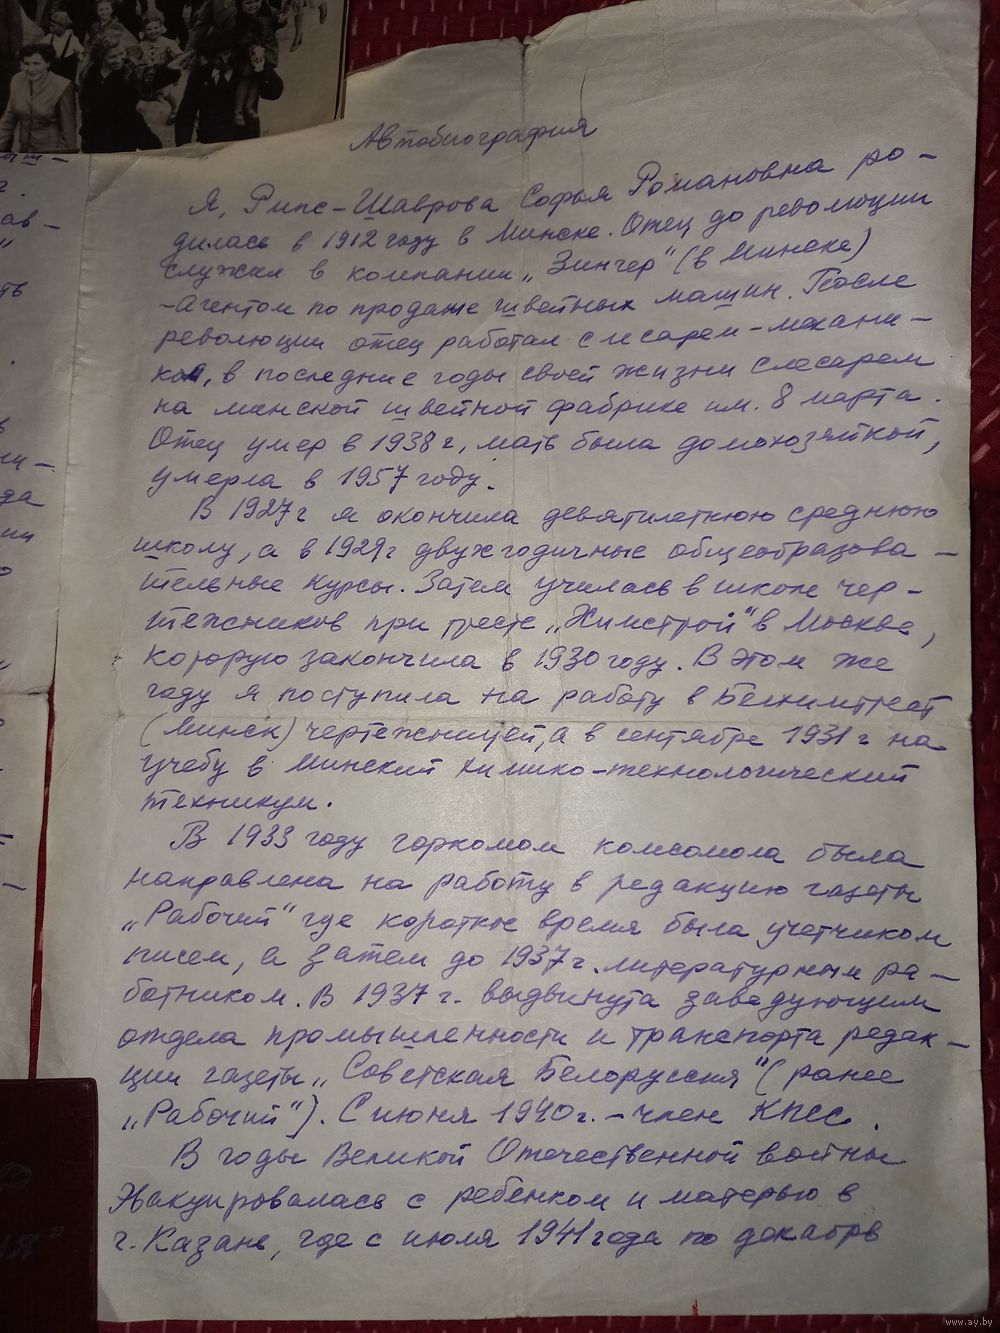 Автобиография
Я, Рипс-Шаврова Софья Романовна ро-
дилась в 1912 году в Минске. Отец до революции
служил в компании „Зингер" (в Минске)
-агентом по продаже швейных машин. После
революции отец работал слесарем-механи-
ком, в последние годы своей жизни слесарем
на минской швейной фабрике им. 8 марта.
Отец умер в 1938 г, мать была домохозяйкой,
умерла в 1957 году.
В 1927 г я окончила девятилетнюю среднюю
школу, а в 1929 г двухгодичные общеобразова-
тельные курсы. Затем училась в школе чер-
тежников при тресте „Химстрой" в Москве,
которую закончила в 1930 году. В этом же
году я поступила на работу в Белхимтрест
(Минск) чертежницей, а в сентябре 1931 г на
учебу в Минский химико-технологический
техникум.
В 1933 году горкомом комсомола была
направлена на работу в редакцию газеты
„Рабочий" где короткое время была учетчиком
писем, а затем до 1937 г. литературным ра-
ботником. В 1937 г. выдвинута заведующим
отдела промышленности и транспорта редак-
ции газеты „Советская Белоруссия" (ранее
„Рабочий"). С июня 1940 г. - член КПСС.
В годы Великой Отечественной войны
эвакуировалась с ребенком и матерью в
г. Казань, где с июля 1941 года по декабрь
www.ay.by